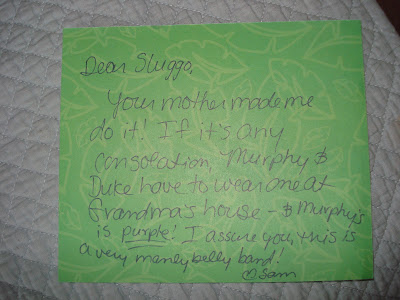 Dear Sluggo,
Your mother made me
do it! If it's any
consolation, Murphy &
Duke have to wear one at
Grandma's house - & Murphy's
is purple! I assure you, this is
a very manly belly band!
♡ Sam